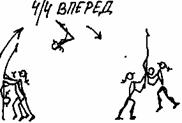 4/4 ВПЕРЕД